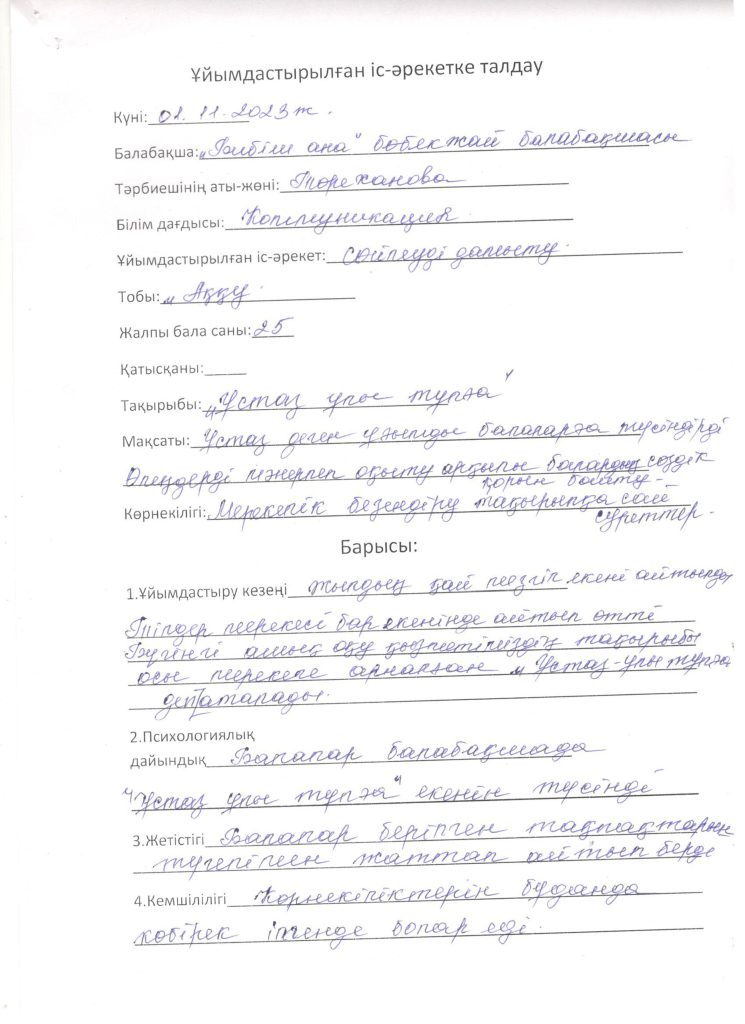 Ұйымдастырылған іс-әрекетке талдау
Күні: 01. 11. 2023 ж.
Балабақша: „Бибіш ана" бөбекжай балабақшасы
Тәрбиешінің аты-жөні: Төреханова
Білім дағдысы: Коммуникация.
Ұйымдастырылған іс-әрекет: Сөйлеуді дамыту.
Тобы: „Аққу.
Жалпы бала саны: 25
Қатысқаны:
Тақырыбы: „Ұстаз ұлы тұлға"
Мақсаты: Ұстаз деген ұғымды балаларға түсіндірді
Өлеңдерді мәнерлеп оқыту арқылы балардың сөздік
қорын байыту-
Көрнекілігі: Мерекелік безендіру тақырыпқа сай
суреттер.
Барысы:
1.Ұйымдастыру кезеңі жылдың қай мезгілі екені айтылды
Тілдер мерекесі бар екенінде айтып өтті
Бүгінгі ашық оқу қызметіміздің тақырыбы
осы мерекеге арналған „Ұстаз-ұлы тұлға
деп аталады.
2.Психологиялық
дайындық Балалар балабақшада
"Ұстаз ұлы тұлға" екенін түсінді
3.Жетістігі Балалар берілген тақпақтарын
түгелімен жаттап айтып берді
4.Кемшілілігі Көрнекіліктерін бұданда
көбірек ілгенде болар еді.